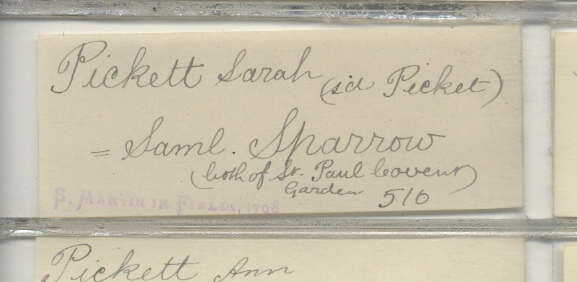 Pickett Sarah (s'd Picket)
= Saml. Sparrow
(both of St. Paul Covent
Garden) 516
S. MARTIN IN FIELDS, 1708
Pickett Ann